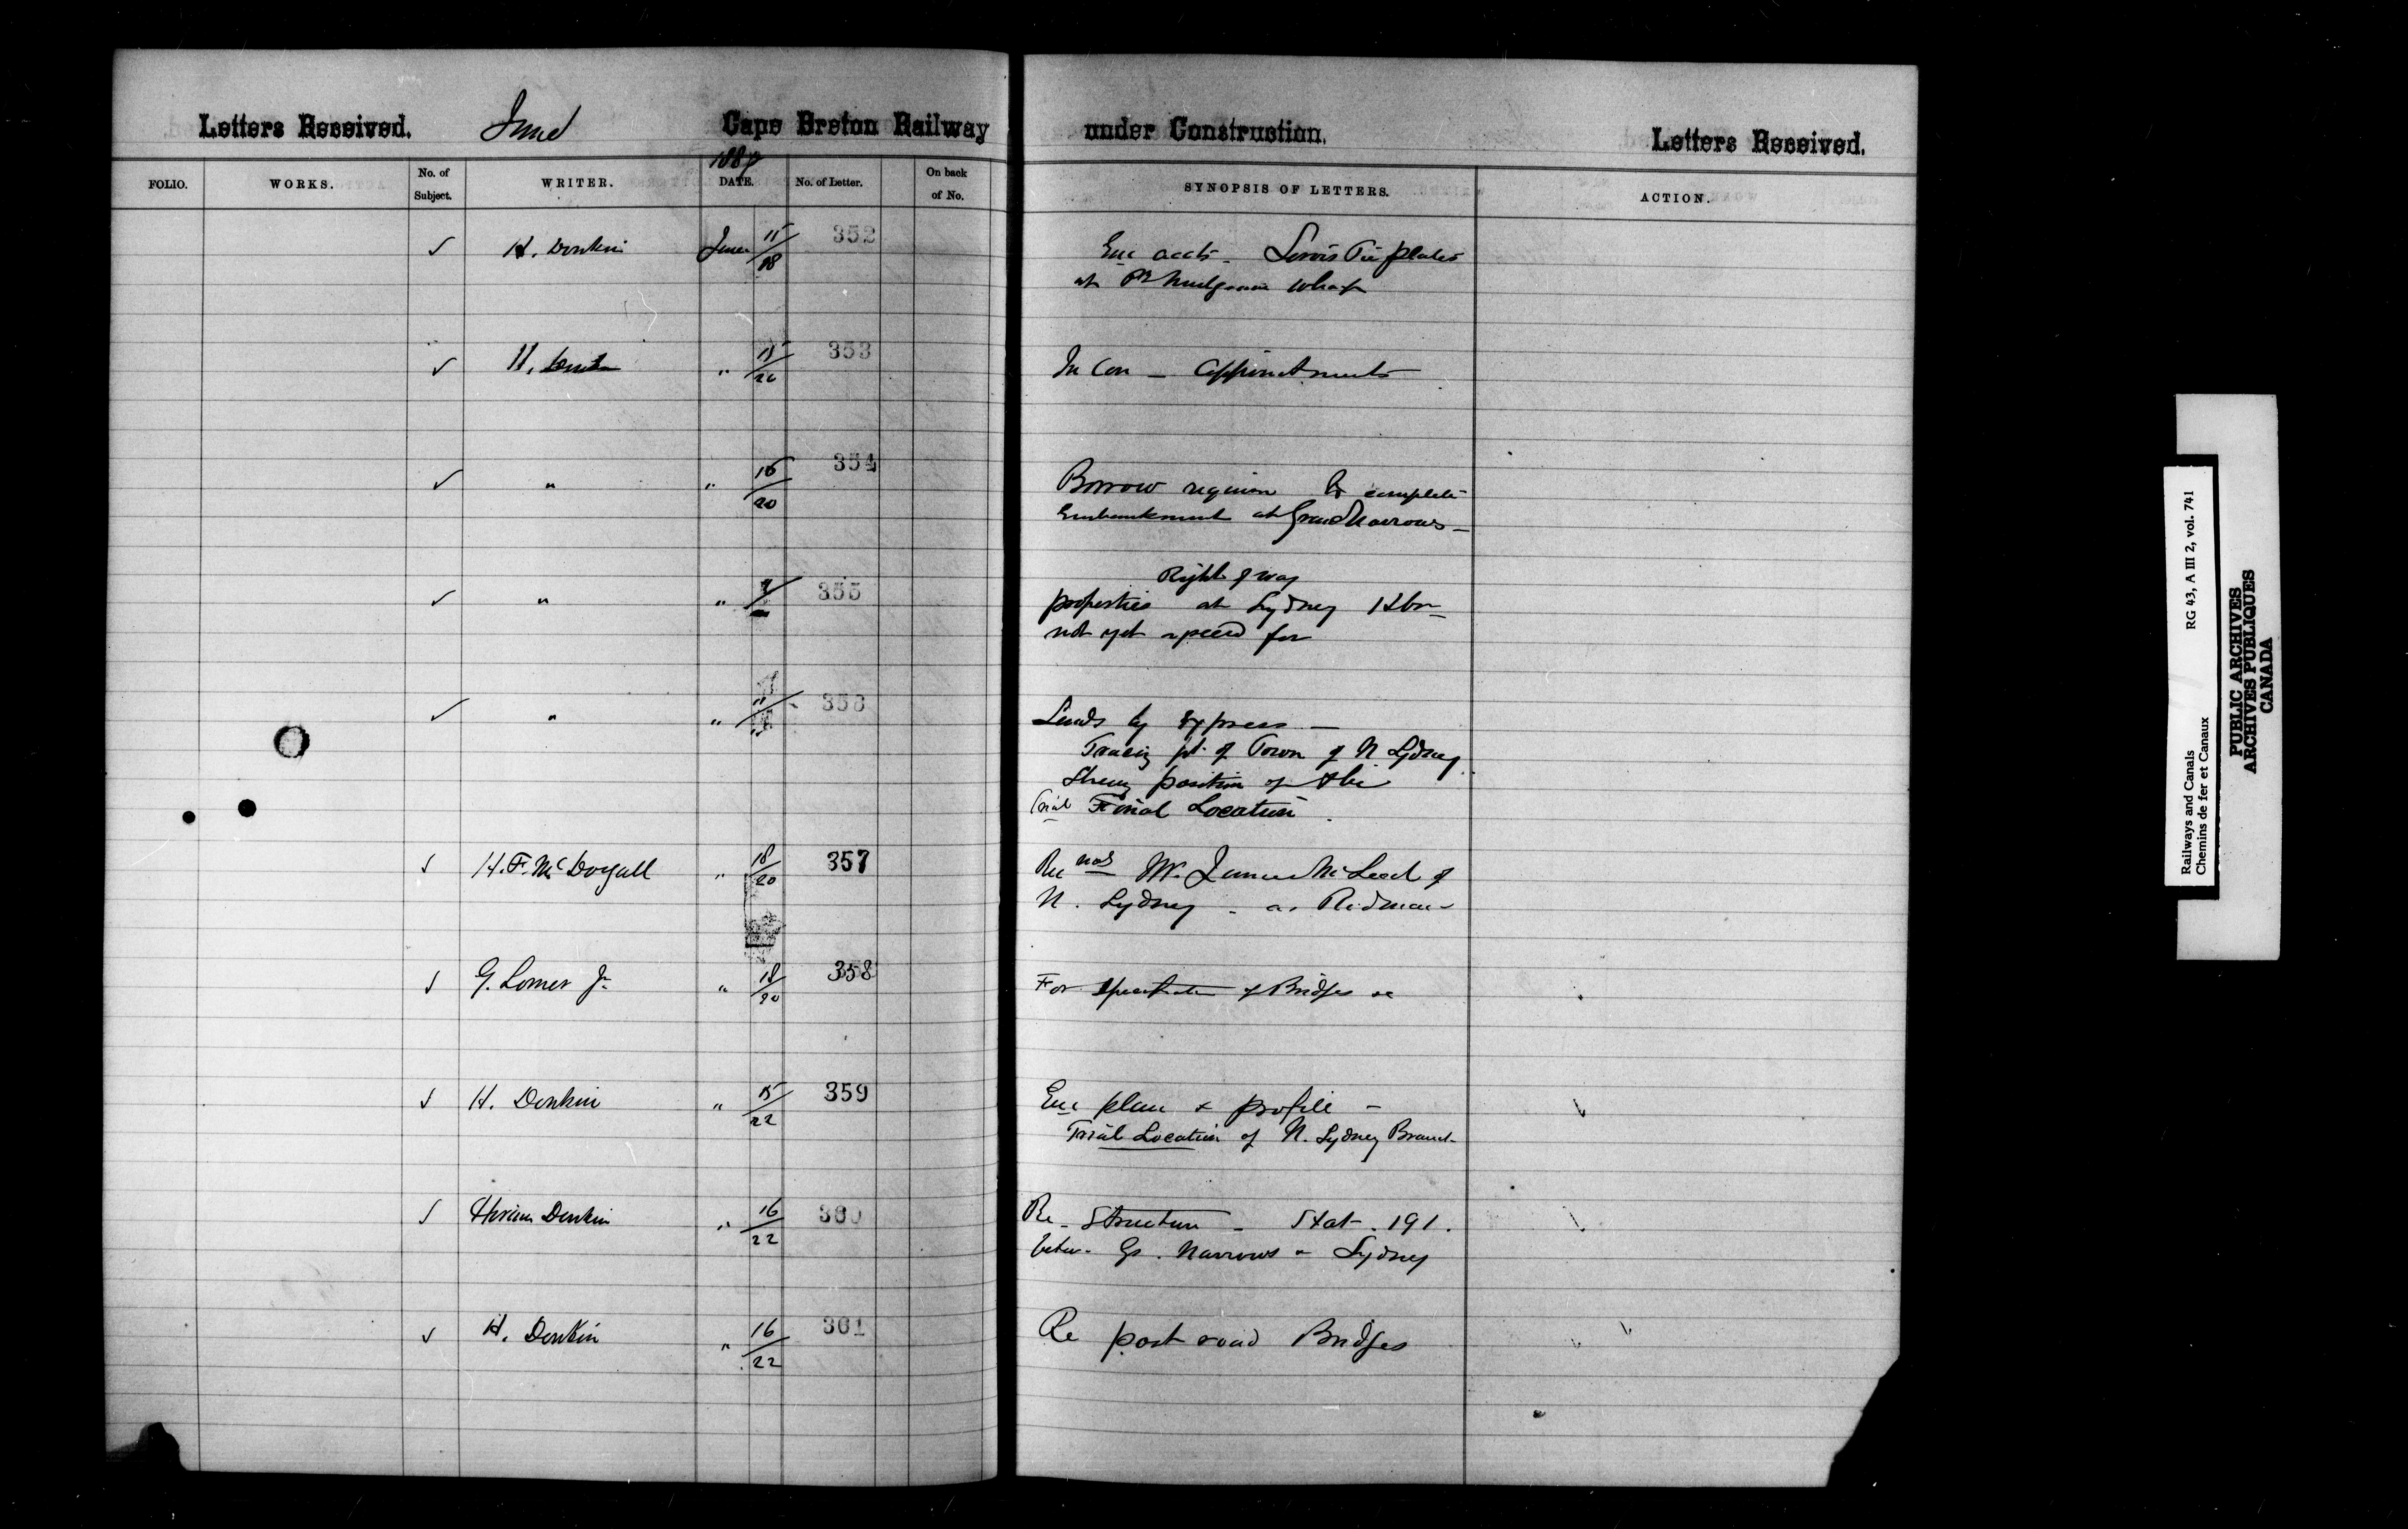 Letters Received. June Cape Breton Railway under Construction. Letters Received.
1889
FOLIO. WORKS. No. of Subject. WRITER. DATE. No. of Letter. On back of No. SYNOPSIS OF LETTERS. ACTION.
✓ H. Donkin June 15/18 352 Enc accts - Servis Tie plates
at wharf
✓ H. Donkin " 15/20 353 In Con - appointments
✓ " " 16/20 354 Borrow required to complete
Embankment at Grand Narrows -
Right of way
✓ " " 355 properties at Sydney Hbr
not yet for
✓ " " "/" 356 Sends by Express -
Tracing pt. of Town of N. Sydney
Shewg position of the
Trial Final Location.
✓ H. F. McDougall " 18/20 357 Recnds Mr. James McLeod of
N. Sydney - as Rodman
✓ G. Lomer Jr " 18/20 358 For specification of Bridges &c
✓ H. Donkin " 15/22 359 Enc plan & profile -
Trial Location of N. Sydney Branch
✓ Hiram Donkin " 16/22 360 Re - Structure - Stat. 191.
betw. Gd. Narrows & Sydney
✓ H. Donkin " 16/22 361 Re post road Bridges
Railways and Canals RG 43, A III 2, vol. 741
Chemins de fer et Canaux
PUBLIC ARCHIVES
ARCHIVES PUBLIQUES
CANADA